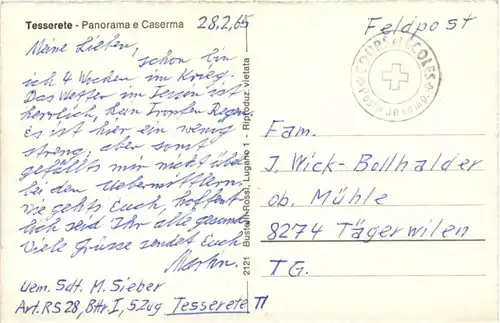 Tesserete - Panorama e Caserma
28.2.65
Meine Lieben,
schon bin
ich 4 Wochen im Krieg.
Das Wetter im Tessin ist
herrlich, kein Tropfen Regen.
Es ist hier ein wenig
streng, aber sonst
gefällts mir nicht übel
bei den Uebermittlern.
Wie gehts Euch, hoffent-
lich seid Ihr alle gesund.
Viele Grüsse sendet Euch
Martin.
Uem. Sdt. M. Sieber
Art. RS 28, Bttr I, 5 Zug Tesserete TI
2121 Busetti-Rossi, Lugano 1 - Riproduz. vietata
Feldpost
COURS & ECOLES
Poste de camp.
Fam.
J. Wick-Bollhalder
ob. Mühle
8274 Tägerwilen
TG.